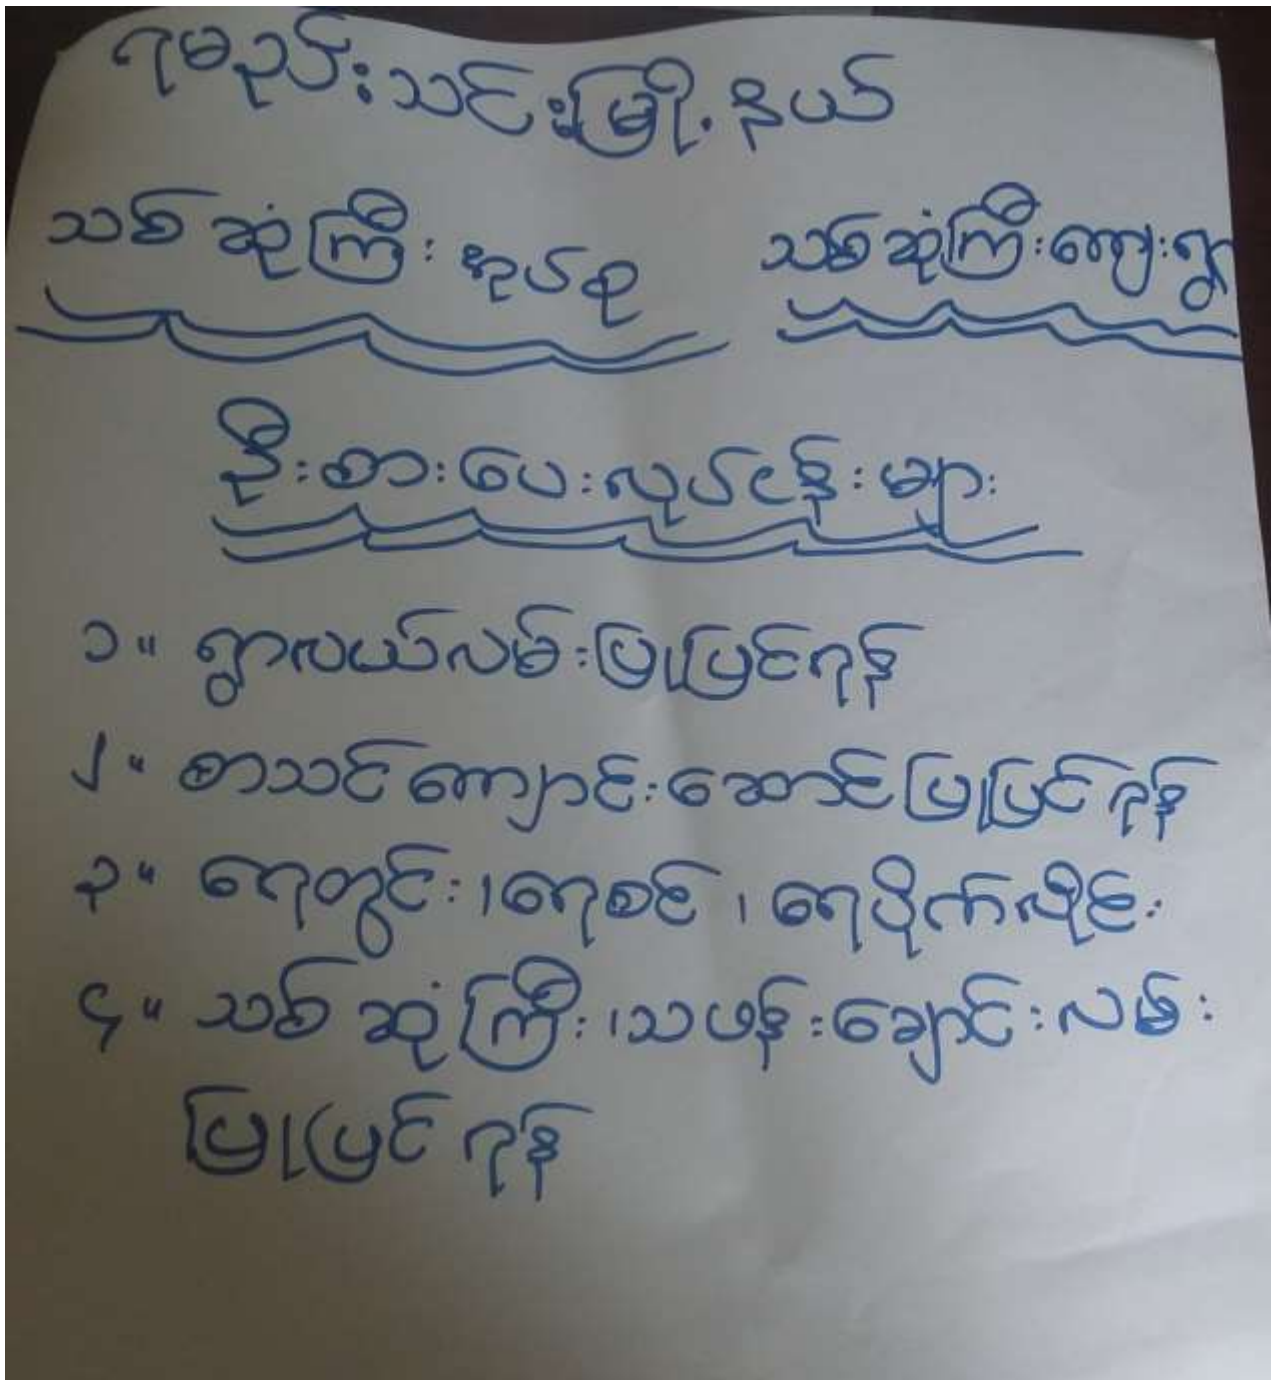 ရမည်းသင်းမြို့နယ်
သစ်ဆုံကြီးအုပ်စု သစ်ဆုံကြီးကျေးရွာ
ဦးစားပေးလုပ်ငန်းများ
၁။ ရွာလယ်လမ်းပြုပြင်ရန်
၂။ စာသင်ကျောင်းဆောင်ပြုပြင်ရန်
၃။ ရေတွင်း၊ရေစင်၊ ရေပိုက်လိုင်း
၄။ သစ်ဆုံကြီး၊သဖန်းချောင်းလမ်း
ပြုပြင်ရန်